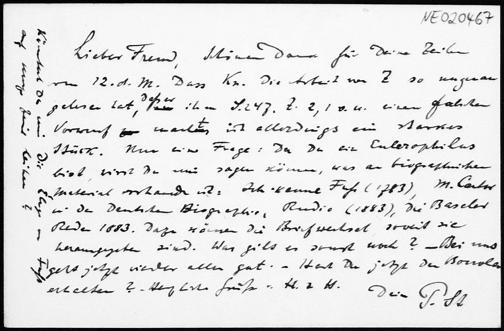 NE020467
Lieber Freund, Schönen Dank für Deine Zeilen
vom 12. d. M. Dass Kn. die Arbeit von Z so ungenau
gelesen hat, dass er ihm S. 247, Z. 2, 1 v. u. einen falschen
Vorwurf macht, ist allerdings ein starkes
Stück. Nun eine Frage: Da Du ein Eulerophilus
bist, wirst Du mir sagen können, was an biographischem
Material vorhanden ist: Ich kenne Fuß (1783), M. Cantor
in der Deutschen Biographie, Rudio (1883), die Baseler
Reden 1883. Dazu können die Briefwechsel, soweit sie
herausgegeben sind. Was gibt es sonst noch? – Bei uns
geht jetzt wieder alles gut. – Hast Du jetzt den
erhalten? – Herzliche Grüße – H. z H.
Dein P. St
Könntest Du mir die von Fuß
auf einige Zeit leihen?